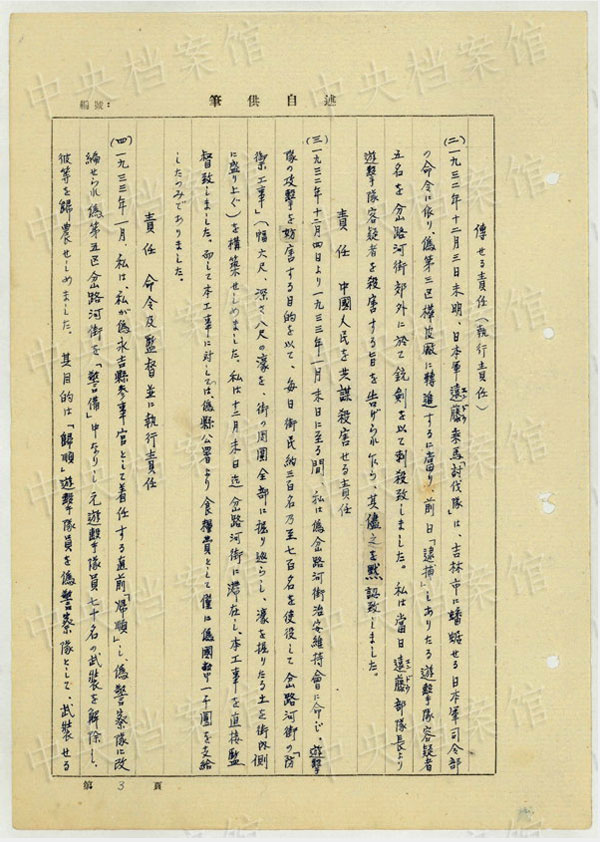 編號：
述自供筆
傳せる責任（執行責任）
(二)一九三二年十二月三日未明、日本軍遠藤乘馬「討伐隊」は、吉林市に蟠踞せる日本軍司令部
の命令に依り、偽第三区樺皮廠に轉進するに當り、前日「逮捕」しありたる遊擊隊容疑者
五名を岔路河街郊外に於て銃劍を以て刺殺致しました。私は當日遠藤部隊長より
遊擊隊容疑者を殺害する旨を告げられ乍ら、其儘之を默認致しました。
責任　中國人民を共謀殺害せる責任
(三)一九三二年十二月四日より一九三三年一月末日に至る間、私は偽岔路河街治安維持會に命じ、遊擊
隊の攻擊を妨害する目的を以て、每日街民約三百名乃至七百名を使役して岔路河街の「防
禦工事」（幅六尺、深さ八尺の濠を、街の周圍全部に掘り巡らし、濠を掘りたる土を街內側
に盛り上ぐ）を構築せしめました。私は十二月末日迄岔路河街に滯在し、本工事を直接監
督致しました。而して本工事に対しては、偽縣公署より食糧費として僅に偽國幣一千圓を支給
したのみでありました。
責任　命令及監督並に執行責任
(四)一九三三年一月、私は、私が偽永吉縣參事官として着任する直前「歸順」し、偽警察隊に改
編せられ偽第五区岔路河街を「警備」中なりし元遊擊隊員七十名の武裝を解除し、
彼等を歸農せしめました。其目的は「歸順」遊擊隊員を偽警察隊として、武裝せる
第3頁
中央档案馆